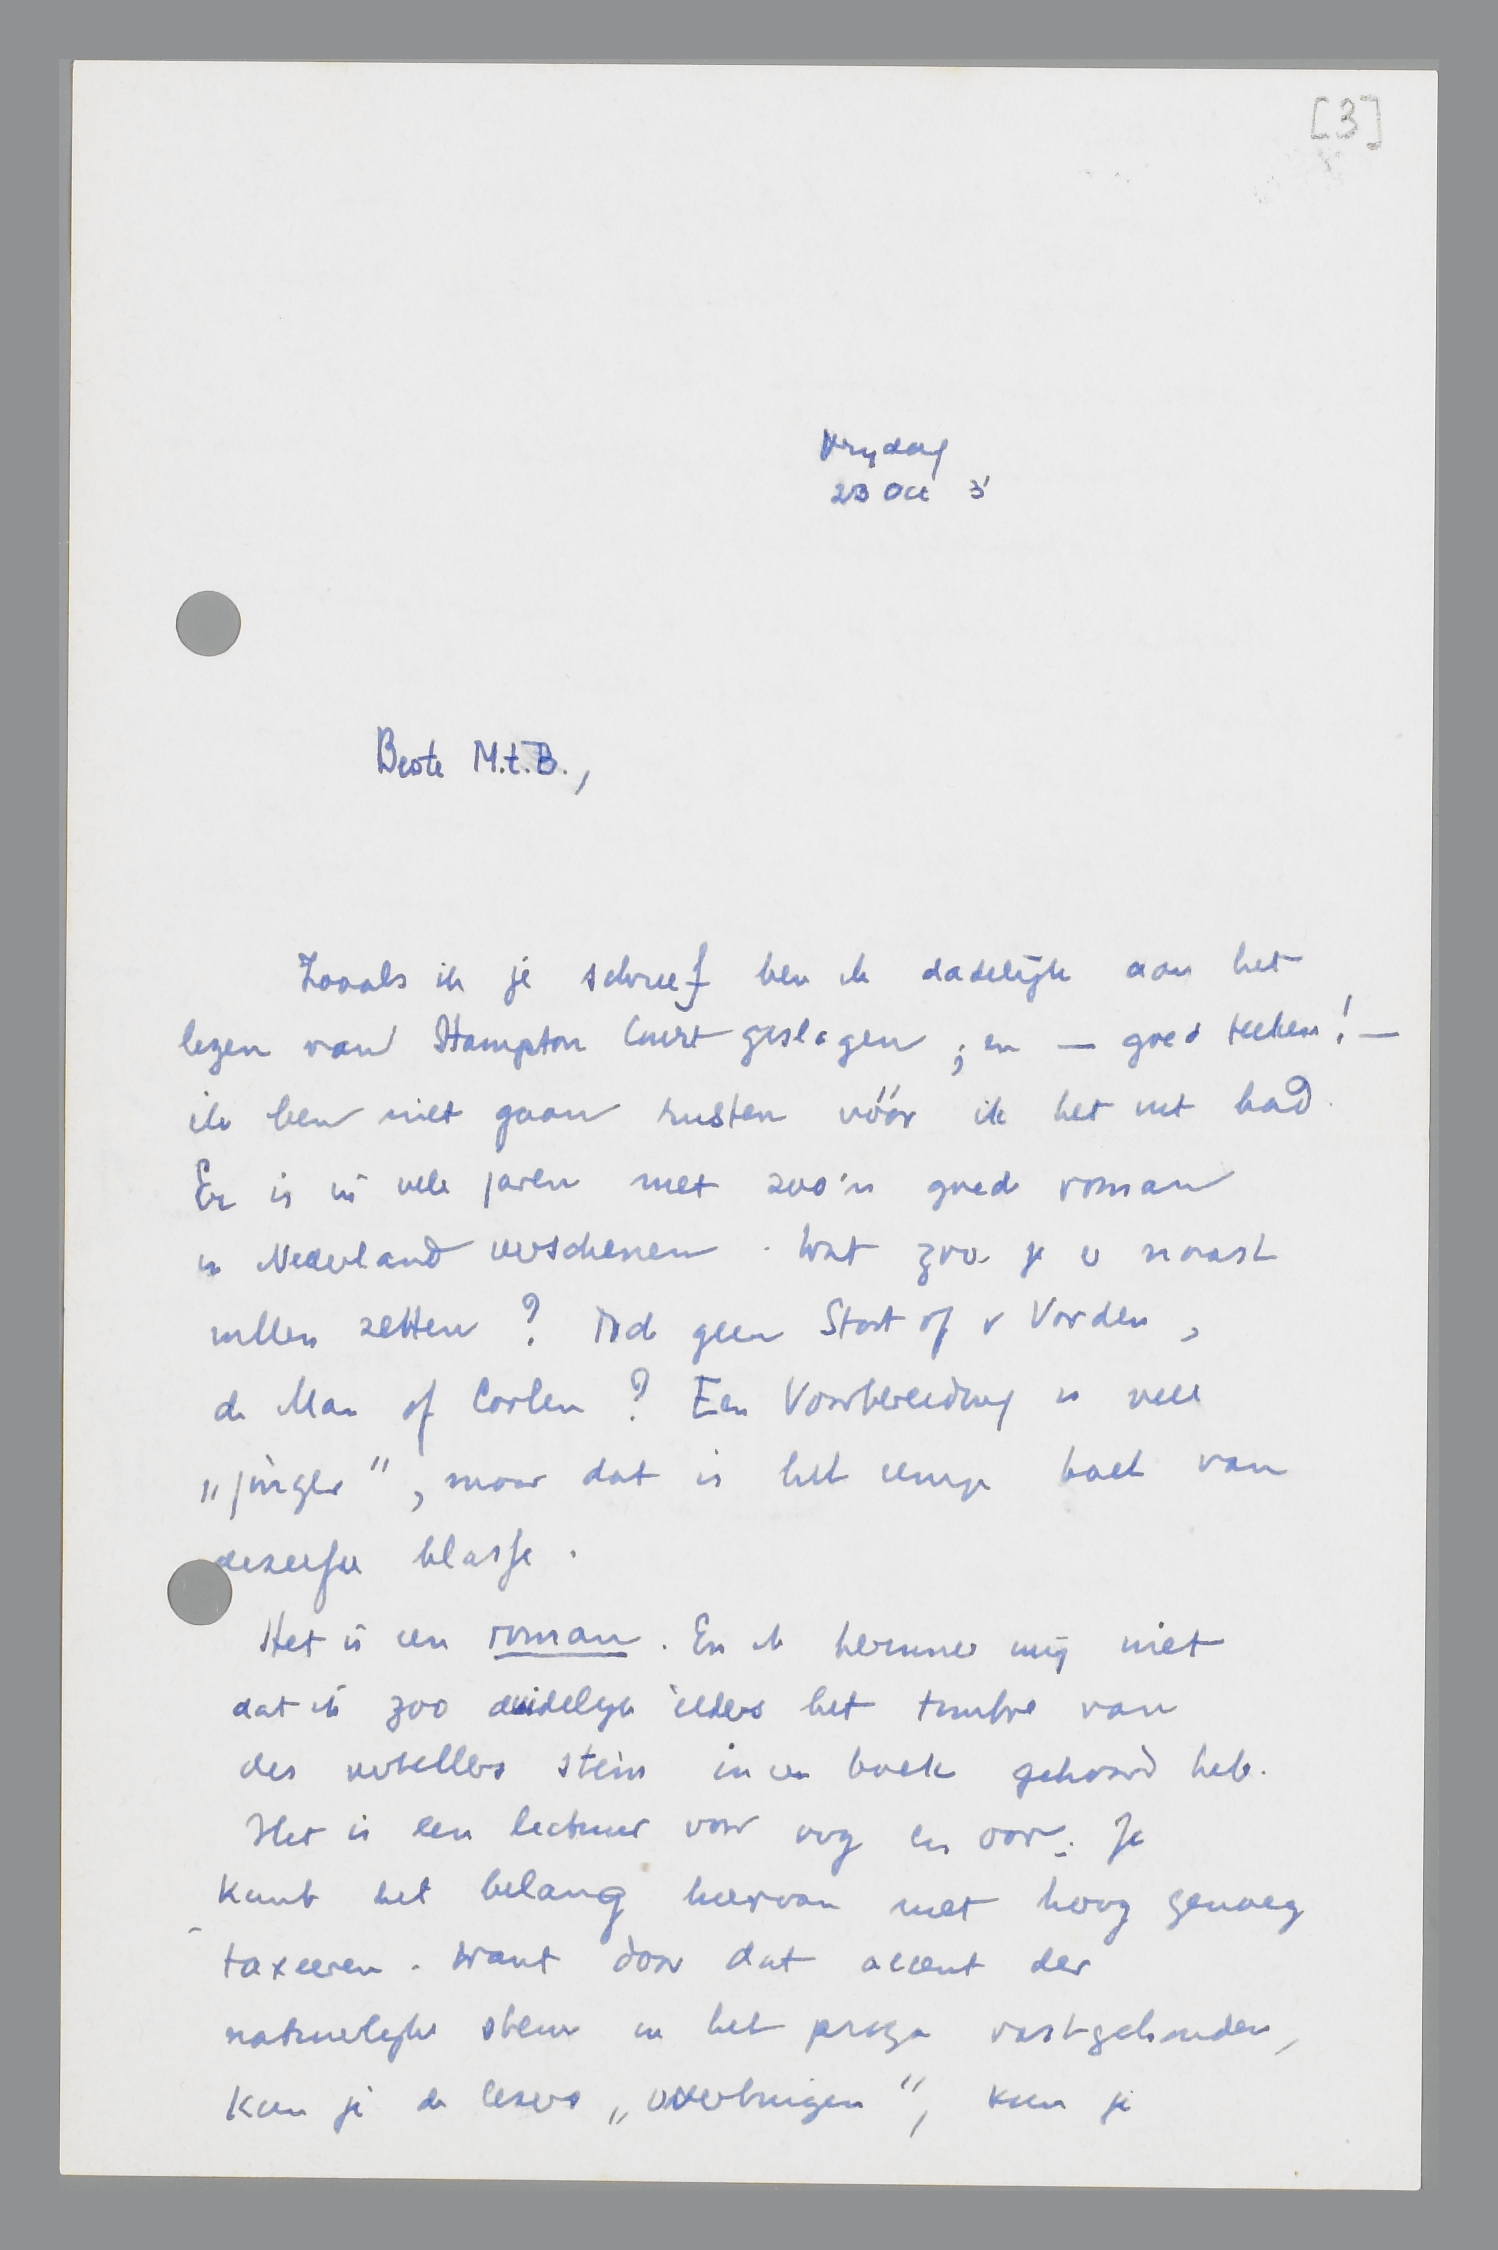 [3]
Vrydag
23 Oct 3'
Beste M.t.B.,
Zooals ik je schreef ben ik dadelijk aan het
lezen van Hampton Court geslagen; en — goed teeken! —
ik ben niet gaan rusten vóór ik het uit had.
Er is in vele jaren niet zoo'n goede roman
in Nederland verschenen. Wat zou je er naast
willen zetten? Toch geen Stort of v Vorden,
de Man of Coolen? Een Voorbereiding is veel
„jonger", maar dat is het eenige boek van
dezelfde klasse.
Het is een roman. En ik herinner mij niet
dat ik zoo duidelijk elders het timbre van
des vertellers stem in een boek gehoord heb.
Het is een lectuur voor oog en oor. Je
kunt het belang hiervan niet hoog genoeg
taxeeren. Want door dat accent der
natuurlijke stem in het proza vastgehouden,
kun je de lezers „overbrengen", kun je